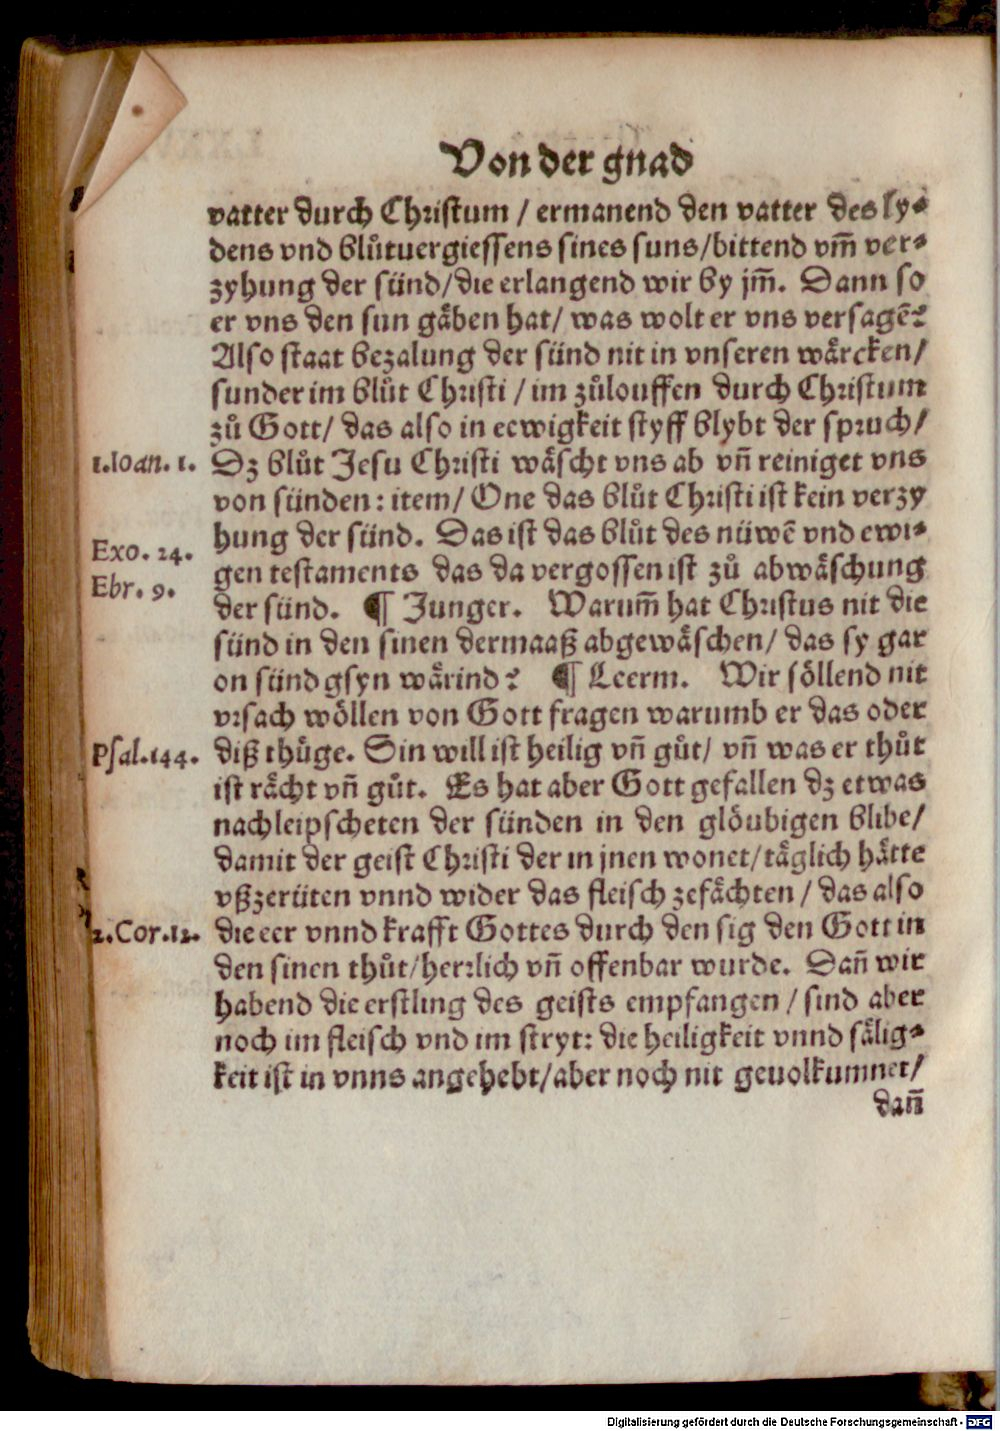 Von der gnad
vatter durch Christum / ermanend den vatter des ly-
dens vnd blůtuergiessens sines suns/bittend vm̃ ver-
zyhung der sünd/die erlangend wir by jm̃. Dann so
er vns den sun gåben hat/ was wolt er vns versagē?
Also staat bezalung der sünd nit in vnseren wårcken/
sunder im blůt Christi / im zůlouffen durch Christum
zů Gott/ das also in eewigkeit styff blybt der spruch/
1.Ioan. 1. Dz blůt Jesu Christi wåscht vns ab vñ reiniget vns
von sünden: item/ One das blůt Christi ist kein verzy
hung der sünd. Das ist das blůt des nüwē vnd ewi-
Exo. 24.
gen testaments das da vergossen ist zů abwåschung
Ebr. 9.
der sünd. ¶ Junger. Warum̃ hat Christus nit die
sünd in den sinen dermaaß abgewåschen/ das sy gar
on sünd gsyn wårind? ¶ Leerm. Wir söllend nit
vrsach wöllen von Gott fragen warumb er das oder
Psal.144. diß thüge. Sin will ist heilig vñ gůt/ vñ was er thůt
ist råcht vñ gůt. Es hat aber Gott gefallen dz etwas
nachleipscheten der sünden in den glöubigen blibe/
damit der geist Christi der in jnen wonet/täglich hätte
vßzerüten vnnd wider das fleisch zefächten / das also
2.Cor.12. die eer vnnd krafft Gottes durch den sig den Gott in
den sinen thůt/herrlich vñ offenbar wurde. Dañ wir
habend die erstling des geists empfangen / sind aber
noch im fleisch vnd im stryt: die heiligkeit vnnd sålig-
keit ist in vnns angehebt/aber noch nit geuolkumnet/
dañ
Digitalisierung gefördert durch die Deutsche Forschungsgemeinschaft - DFG